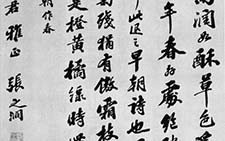 雨潤如酥草色
年春好處絕
此退之早朝詩也
殘猶有傲霜枝
是橙黃橘綠時
君雅正 張之洞